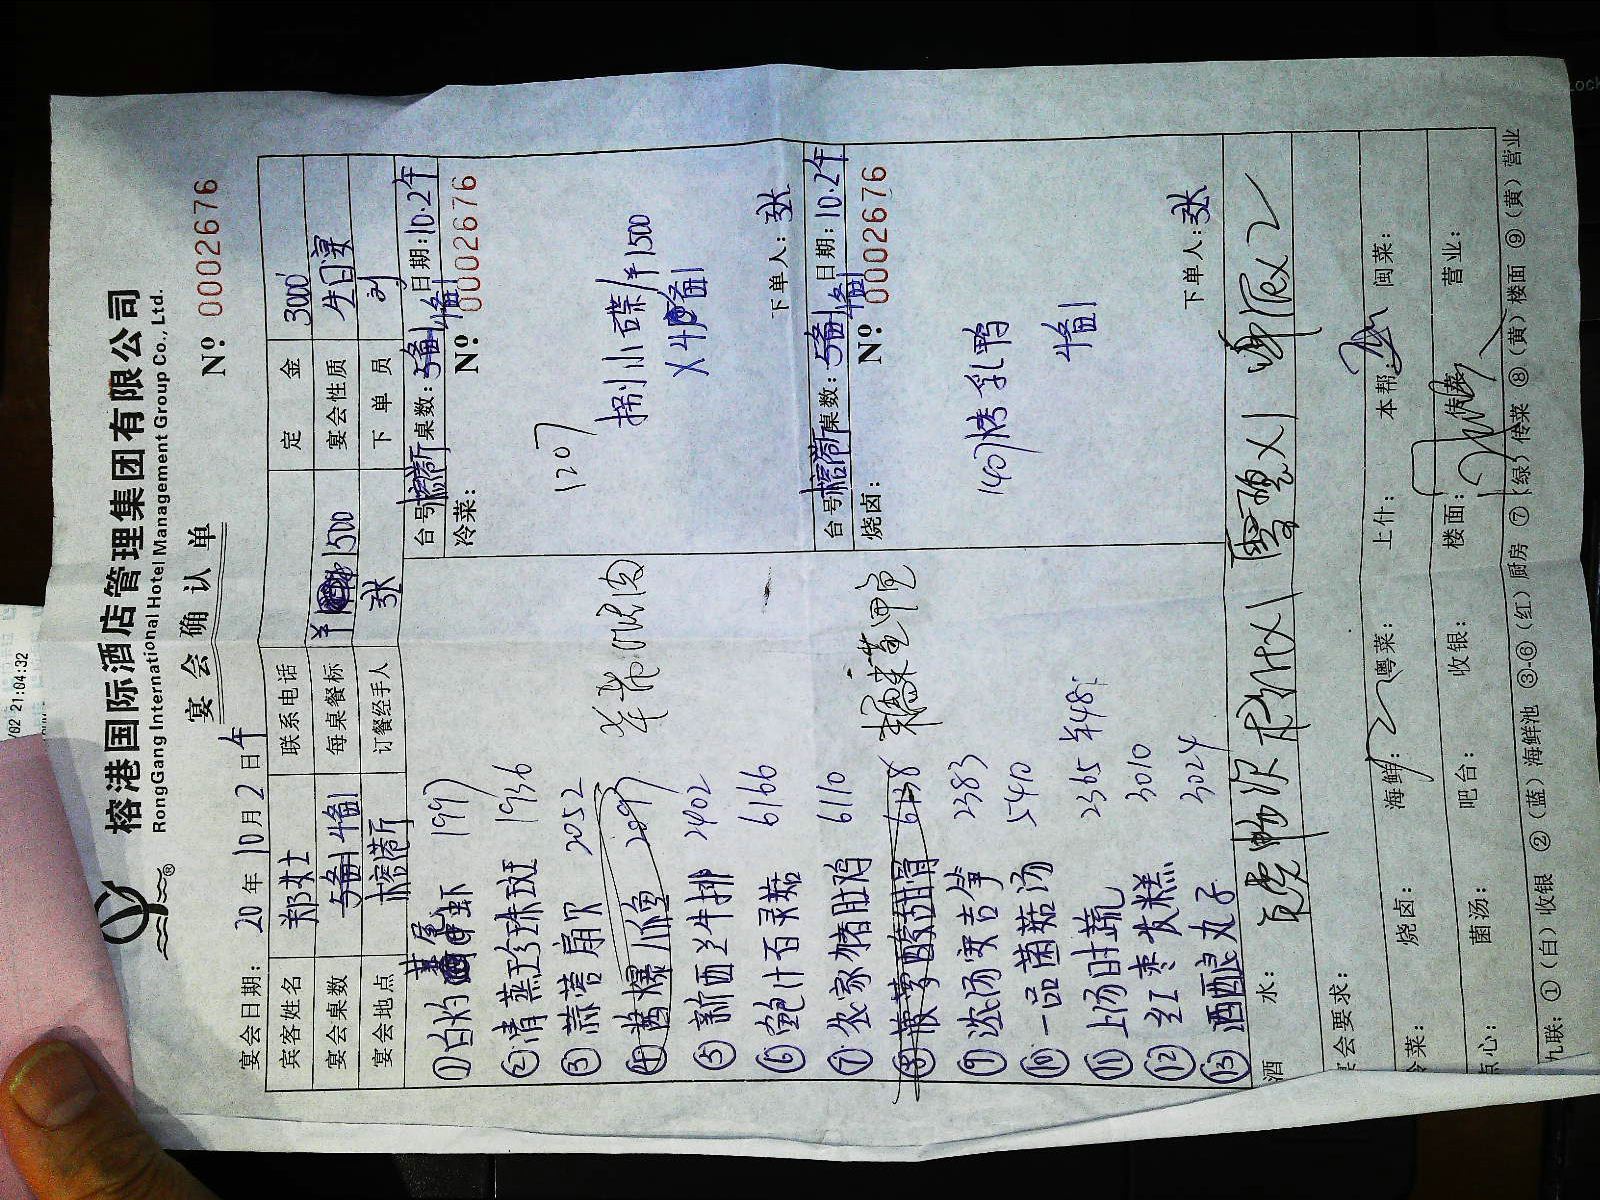 榕港国际酒店管理集团有限公司
RongGang International Hotel Management Group Co., Ltd.
宴会确认单
Nº 0002676
宴会日期: 20 年 10 月 2 日 午
宾客姓名 郑女士 联系电话 定金 3000
宴会桌数 4备1 每桌餐标 1500 宴会性质 生日宴
宴会地点 榕港斤 订餐经手人 张 下单员
台号 榕港斤 桌数: 4备1 日期: 10.2午
冷菜: Nº 0002676
1207
捌小碟/羊1500
X 4备1
下单人: 张
台号 榕港斤 桌数: 4备1 日期: 10.2午
烧卤: Nº 0002676
1407 烤乳鸭
4备1
下单人: 张
① 白灼基尾虾 1997
② 清蒸珍珠斑 1936
③ 蒜蓉扇贝 2052
④ 2097
⑤ 新西兰牛排 2402
⑥ 鲍汁百灵菇 6166
⑦ 农家猪肚鸡 6110
⑧ 菠萝酸甜骨 6138
⑨ 浓汤芙吉笋 2383
⑩ 一品菌菇汤 5440
⑪ 上汤时蔬 2365
⑫ 红枣发糕 3010
⑬ 酒酿丸子 3024
酒水: 雪碧X1
宴会要求:
冷菜: 烧卤: 海鲜: 粤菜: 上什: 本帮: 闽菜:
点心: 菌汤: 吧台: 收银: 楼面: 传菜 营业:
九联: ①(白)收银 ②(蓝)海鲜池 ③-⑥(红)厨房 ⑦(绿)传菜 ⑧(黄)楼面 ⑨(黄)营业
/02 21:04:32